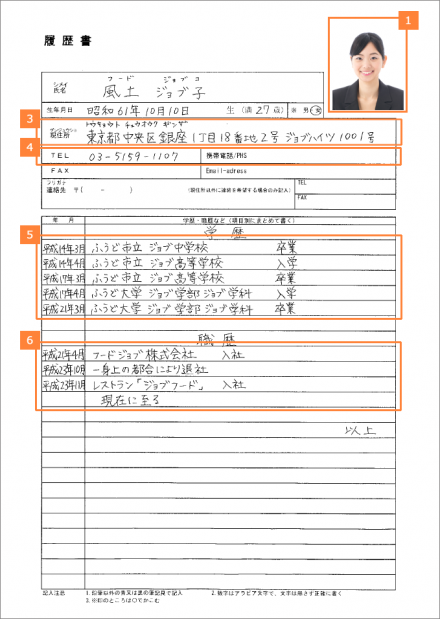 1
履歴書
シメイ フード ジョブコ
氏名 風土 ジョブ子
生年月日 昭和61年10月10日 生 (満27歳) ※ 男・女
3
ゲンジュウショ トウキョウト チュウオウク ギンザ
現住所 東京都中央区銀座1丁目18番地2号 ジョブハイツ1001号
4
TEL 03-5159-1107 携帯電話/PHS
FAX Email-adress
フリガナ TEL
連絡先 〒( - ) (現住所以外に連絡を希望する場合のみ記入)
FAX
年 月 学歴・職歴など (項目別にまとめて書く)
学歴
5
平成14年3月 ふうど市立 ジョブ中学校 卒業
平成14年4月 ふうど市立 ジョブ高等学校 入学
平成17年3月 ふうど市立 ジョブ高等学校 卒業
平成17年4月 ふうど大学 ジョブ学部 ジョブ学科 入学
平成21年3月 ふうど大学 ジョブ学部 ジョブ学科 卒業
6
職歴
平成21年4月 フードジョブ株式会社 入社
平成23年10月 一身上の都合により退社
平成23年11月 レストラン「ジョブフード」 入社
現在に至る
以上
記入注意 1.鉛筆以外の青又は黒の筆記具で記入 2.数字はアラビア文字で、文字は崩さず正確に書く
3.※印のところは○でかこむ